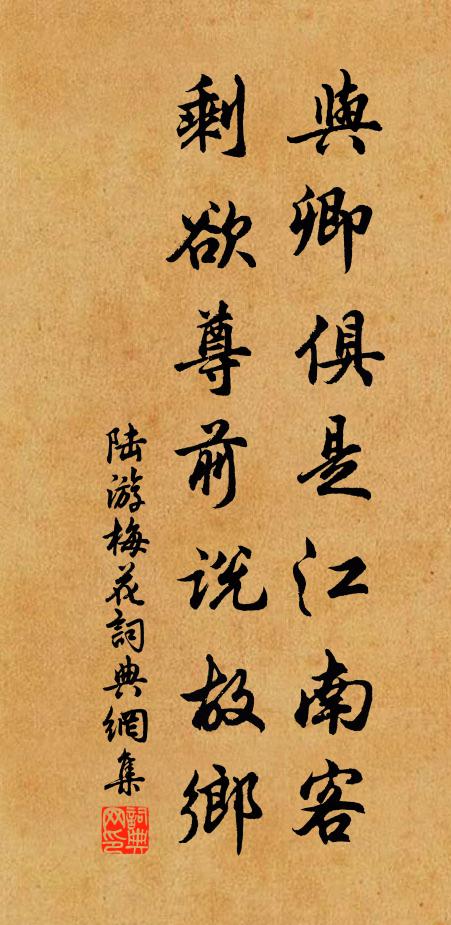 與卿俱是江南客
剩欲尊前說故鄉
陸游梅花詞典網集
詞典網印